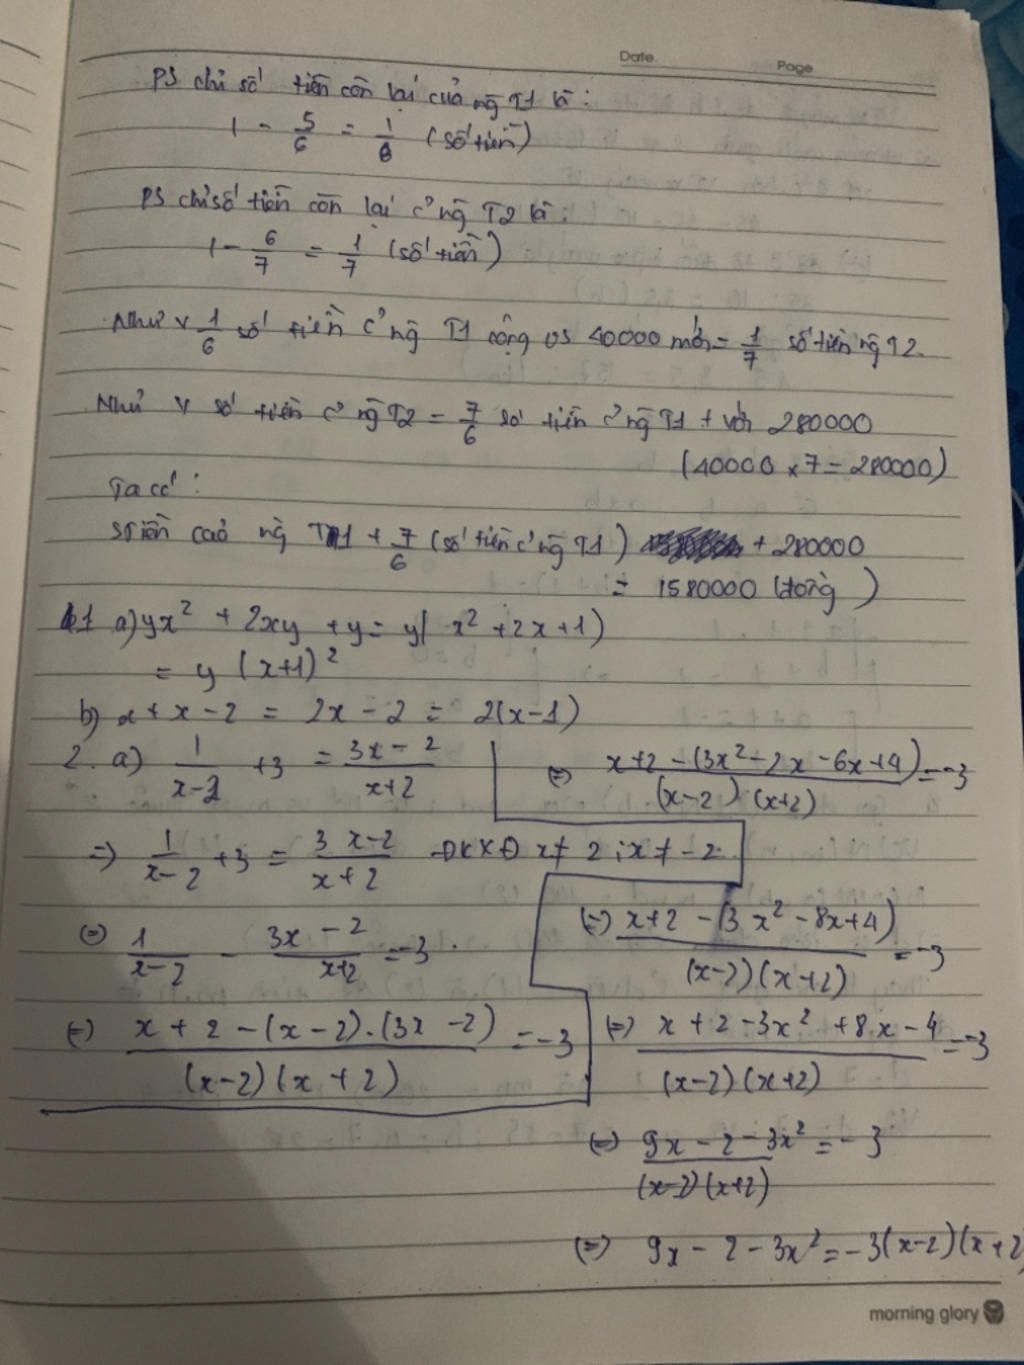 Date
Page
PS chỉ số tiền còn lại của ng T1 là :
1 - 5/6 = 1/6 (số tiền)
PS chỉ số tiền còn lại c' ng T2 là :
1 - 6/7 = 1/7 (số tiền)
Như v 1/6 số tiền c' ng T1 cộng vs 40000 mới = 1/7 số tiền ng T2.
Như v số tiền c' ng T2 = 7/6 số tiền c' ng T1 + với 280000
(40000 x 7 = 280000)
Ta có :
số tiền của ng T1 + 7/6 (số tiền c' ng T1) + 280000
= 1580000 (đồng)
1 a) yx² + 2xy + y = y( x² + 2x + 1)
= y (x+1)²
b) x + x - 2 = 2x - 2 = 2(x-1)
2. a) 1/(x-2) + 3 = (3x - 2)/(x+2)
=) 1/(x-2) + 3 = (3x-2)/(x+2) ĐKXĐ x ≠ 2 ; x ≠ -2.
(=) 1/(x-2) - (3x - 2)/(x+2) = -3.
(=) (x + 2 - (x - 2).(3x - 2))/((x-2)(x + 2)) = -3
(=) (x+2 - (3x² - 2x - 6x + 4))/((x-2).(x+2)) = -3
(=) (x+2 - (3x² - 8x + 4))/((x-2)(x+2)) = -3
(=) (x + 2 - 3x² + 8x - 4)/((x-2)(x+2)) = -3
(=) (9x - 2 - 3x²)/((x-2)(x+2)) = -3
(=) 9x - 2 - 3x² = -3(x-2)(x+2
morning glory